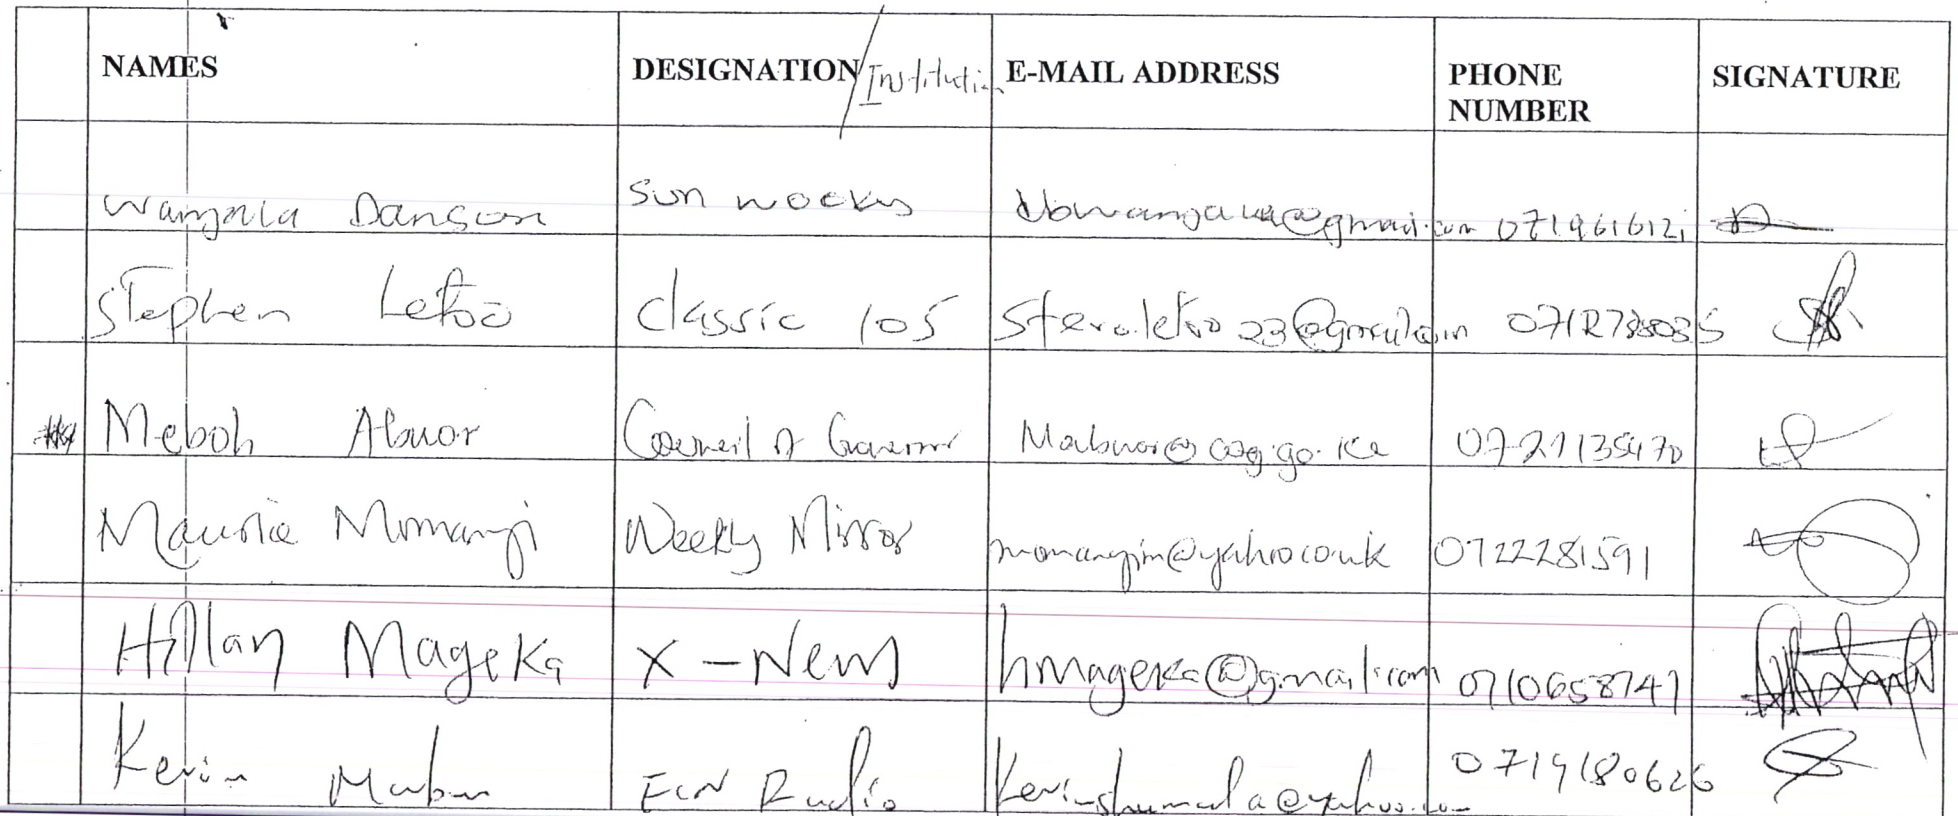 NAMES DESIGNATION/Institution E-MAIL ADDRESS PHONE NUMBER SIGNATURE
Wangala Danson Sun weekly 0719616121
Stephen Letoo Classic 105 0712738035
Meboh Abuor Council of Governors Mabuor@cog.go.ke 0721135470
Maurice Momanyi Weekly Mirror momanyim@yahoo.co.uk 0722281591
Hillan Mageka X-News hmageka@gmail.com 0710658747
Kevin Radio 0719180626